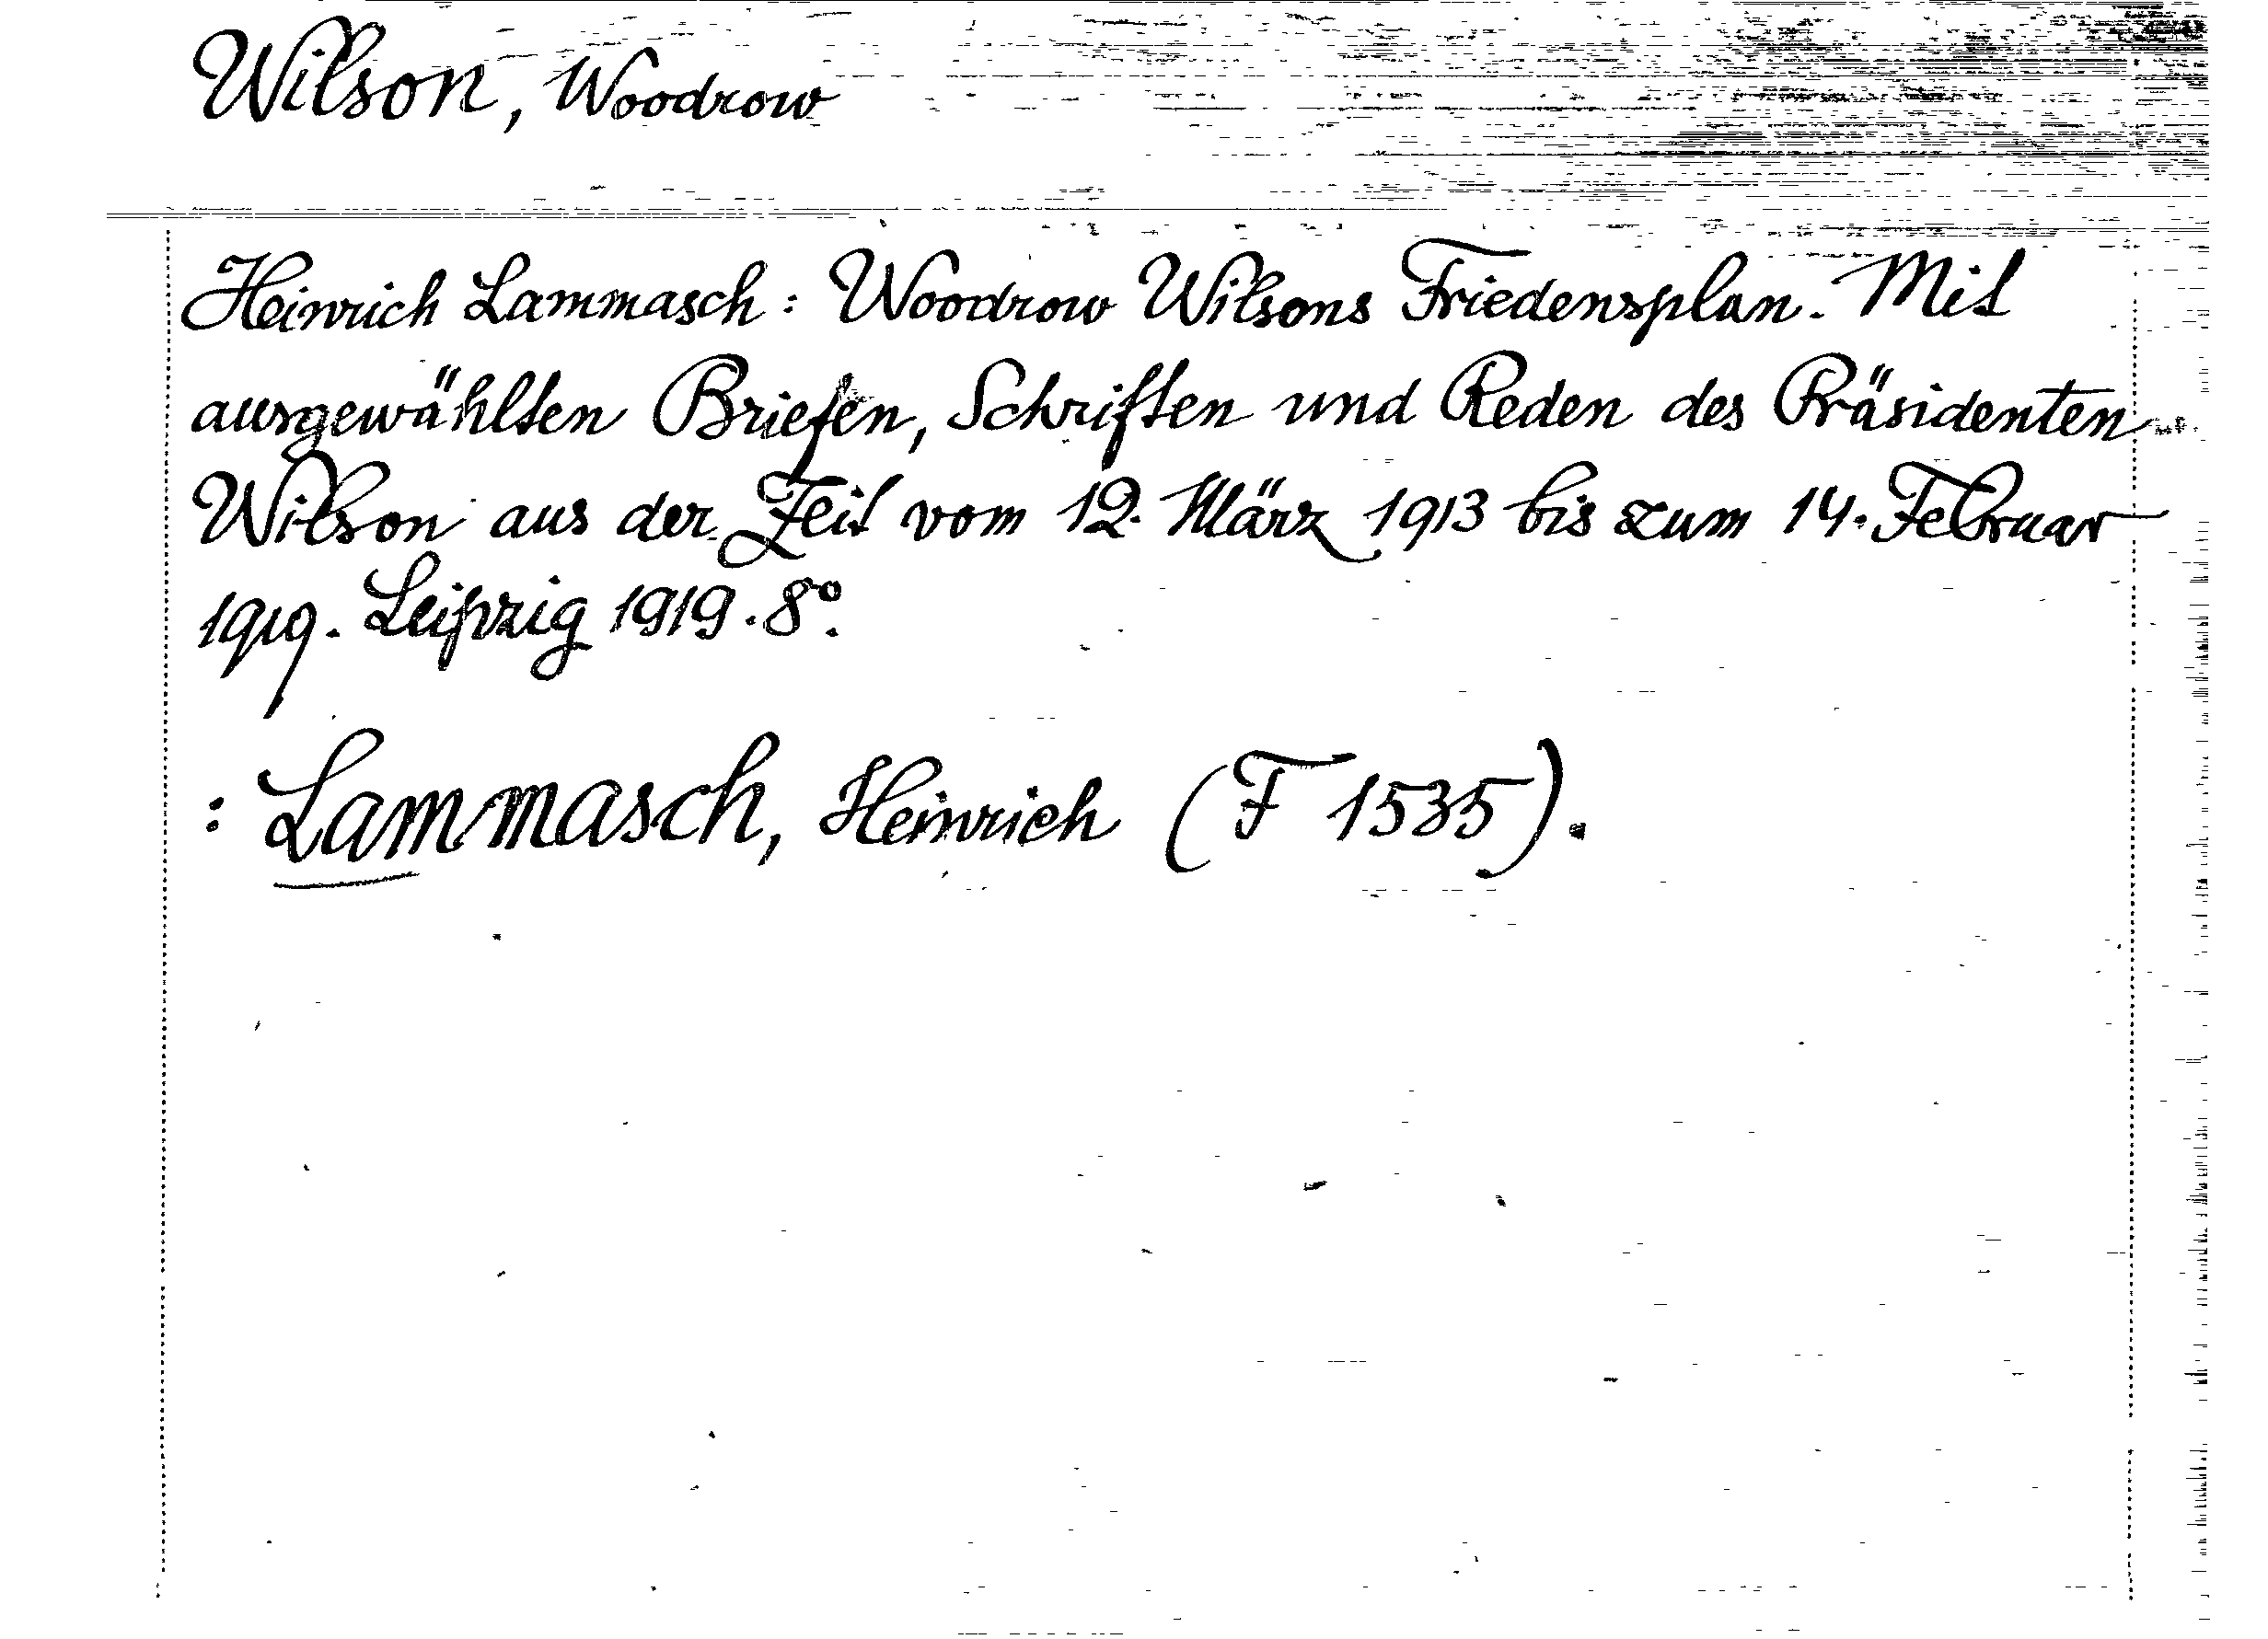 Wilson, Woodrow
Heinrich Lammasch: Woodrow Wilsons Friedensplan. Mit
ausgewählten Briefen, Schriften und Reden des Präsidenten
Wilson aus der Zeit vom 12. März 1913 bis zum 14. Februar
1919. Leipzig 1919. 8°.
: Lammasch, Heinrich (F 1535).